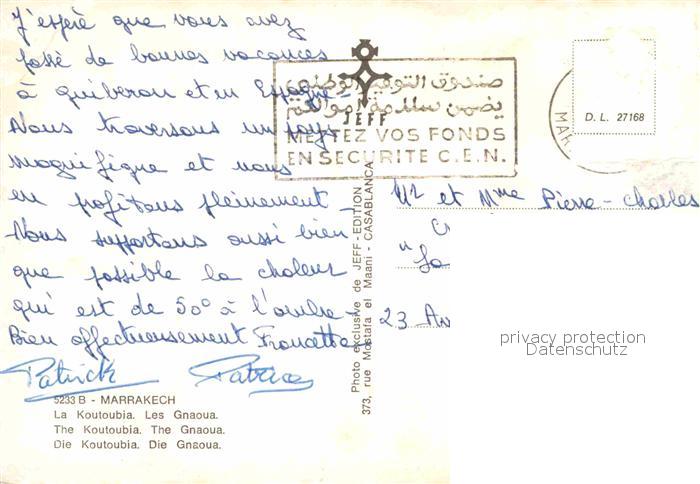 J'espère que vous avez
passé de bonnes vacances
à Quiberon et en Espagne -
Nous traversons un pays
magnifique et nous
en profitons pleinement -
Nous supportons aussi bien
que possible la chaleur
qui est de 50° à l'ombre -
Bien affectueusement Francette
Patrick Patrice
5233 B - MARRAKECH
La Koutoubia. Les Gnaoua.
The Koutoubia. The Gnaoua.
Die Koutoubia. Die Gnaoua.
صندوق التوفير الوطني
يضمن سلامة أموالكم
JEFF
METTEZ VOS FONDS
EN SECURITE C.E.N.
MAR
D. L. 27168
Photo exclusive de JEFF-EDITION
373, rue Mostafa el Maani - CASABLANCA
Mr et Mme Pierre-Charles
23 Av
privacy protection
Datenschutz